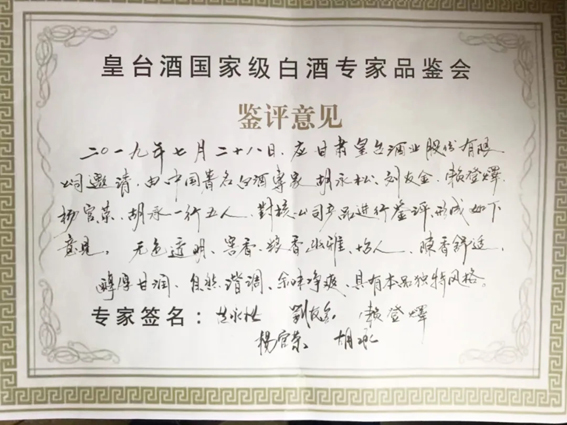 皇台酒国家级白酒专家品鉴会
鉴评意见
二〇一九年七月二十八日，应甘肃皇台酒业股份有限
公司邀请，由中国著名白酒专家胡永松、刘友金、赖登燡、
杨官荣、胡永一行五人，对该公司产品进行鉴评，形成如下
意见。无色透明、窖香、幽雅、陈香舒适、
醇厚甘润、自然谐调、余味净爽、具有本品独特风格。
专家签名：胡永松 刘友金 赖登燡
杨官荣 胡永